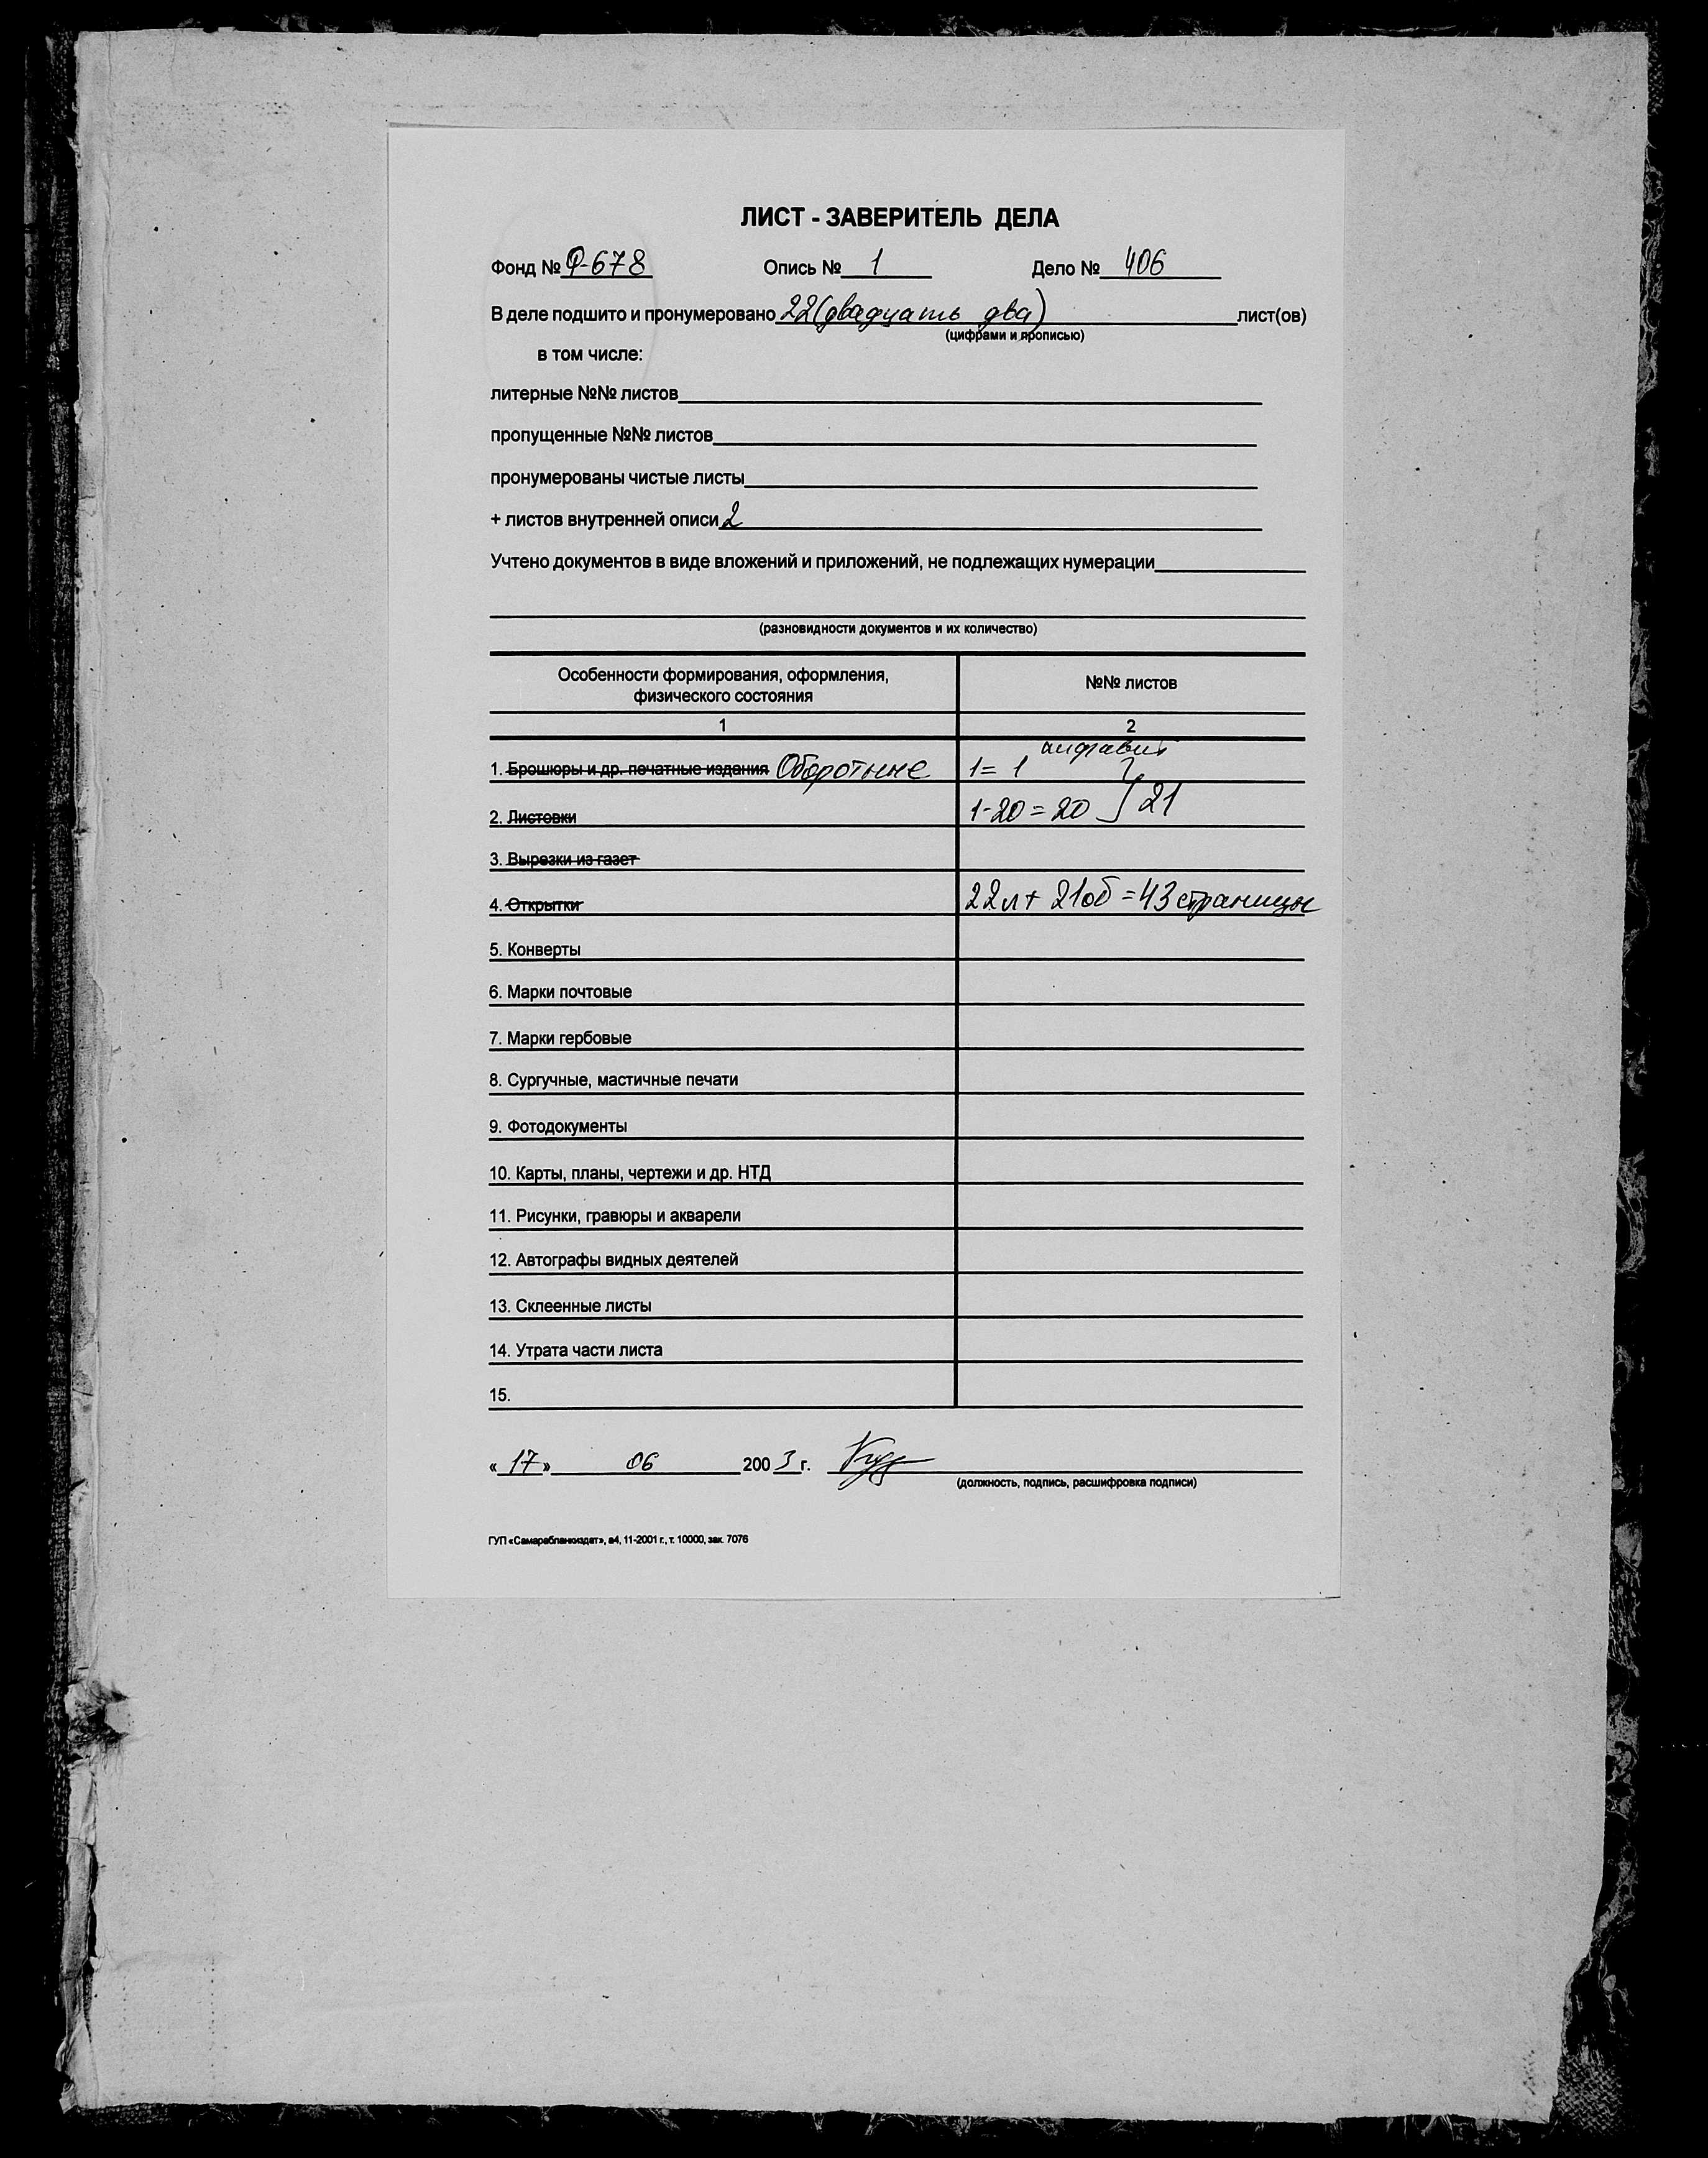 ЛИСТ - ЗАВЕРИТЕЛЬ ДЕЛА
Фонд № Ф-678 Опись № 1 Дело № 406
В деле подшито и пронумеровано 22 (двадцать два) лист(ов)
(цифрами и прописью)
в том числе:
литерные №№ листов
пропущенные №№ листов
пронумерованы чистые листы
+ листов внутренней описи 2
Учтено документов в виде вложений и приложений, не подлежащих нумерации
(разновидности документов и их количество)
Особенности формирования, оформления,
физического состояния
№№ листов
1 2
алфавит
1. Брошюры и др. печатные издания Оборотные 1 = 1
2. Листовки 1-20 = 20 } 21
3. Вырезки из газет
4. Открытки 22 л + 21 об = 43 страницы
5. Конверты
6. Марки почтовые
7. Марки гербовые
8. Сургучные, мастичные печати
9. Фотодокументы
10. Карты, планы, чертежи и др. НТД
11. Рисунки, гравюры и акварели
12. Автографы видных деятелей
13. Склеенные листы
14. Утрата части листа
15.
« 17 » 06 2003 г.
(должность, подпись, расшифровка подписи)
ГУП «Самарабланкиздат», а4, 11-2001 г., т. 10000, зак. 7076